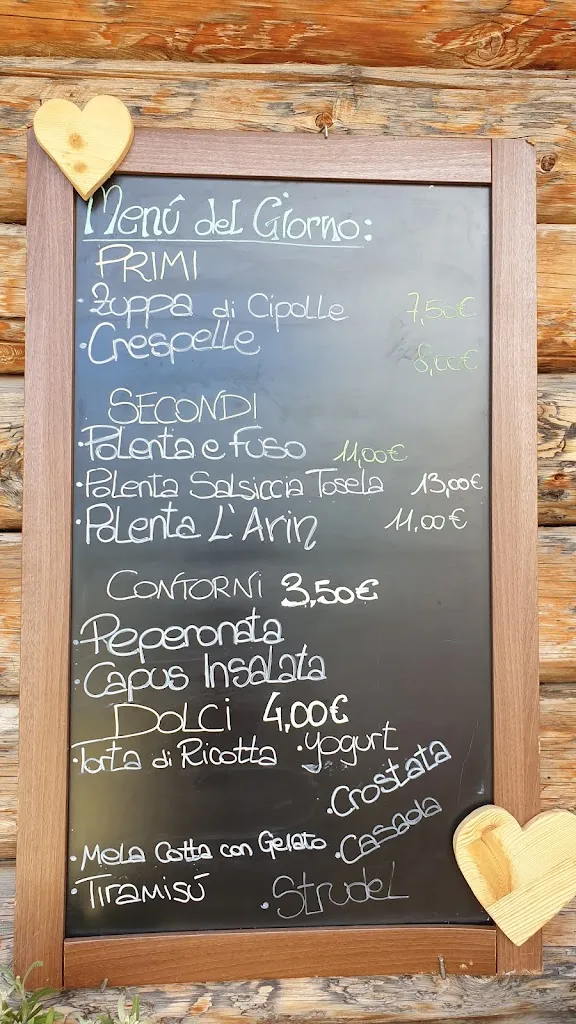 Menû del Giorno:
PRIMI
·Zuppa di Cipolle 7,50€
·Crespelle 8,00€
SECONDI
·Polenta e Fuso 11,00€
·Polenta Salsiccia Tosela 13,00€
·Polenta L'Arin 11,00€
CONTORNI 3,50€
·Peperonata
·Capus Insalata
DOLCI 4,00€
·Torta di Ricotta ·Yogurt
·Crostata
·Mela Cotta con Gelato ·Casada
·Tiramisú ·Strudel